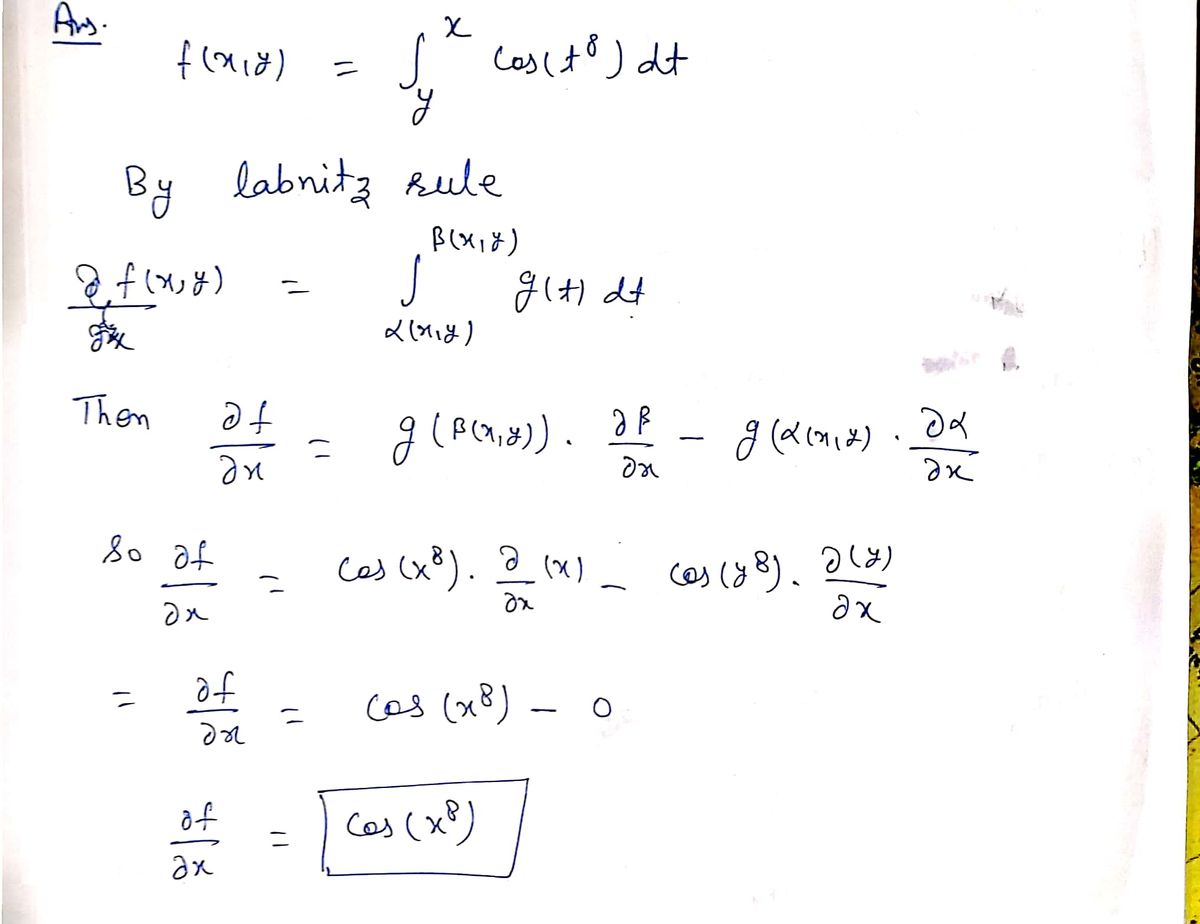 Ans.
f(x,y) = ∫_y^x cos(t⁸) dt
By labnitz rule
∂ f(x,y) / ∂x = ∫_{α(x,y)}^{β(x,y)} g(t) dt
Then ∂f/∂x = g(β(x,y)). ∂β/∂x − g(α(x,y) . ∂α/∂x
So ∂f/∂x = cos(x⁸). ∂/∂x (x) − cos(y⁸). ∂(y)/∂x
= ∂f/∂x = cos(x⁸) − 0
∂f/∂x = cos(x⁸)